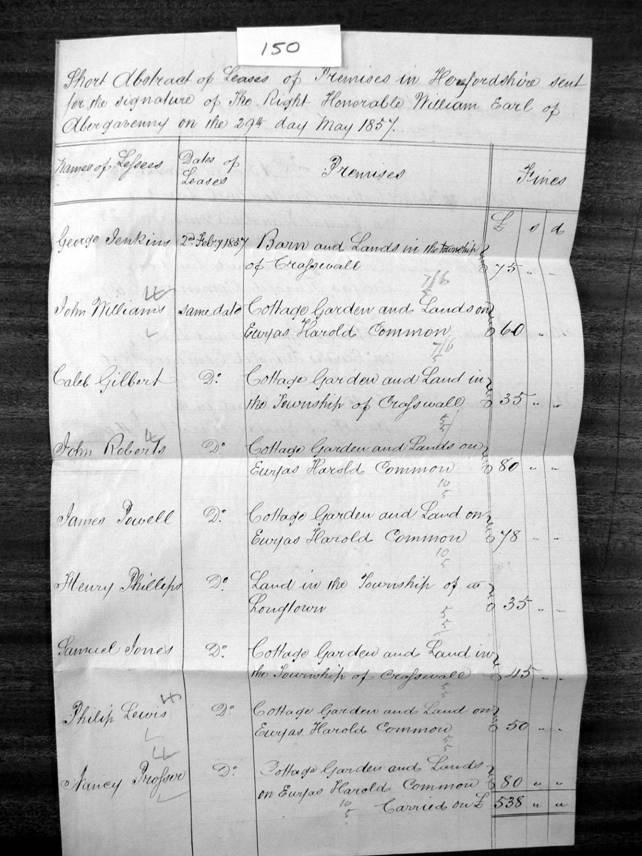 150
Short Abstract of Leases of Premises in Herefordshire sent
for the signature of The Right Honorable William Earl of
Abergavenny on the 29th day May 1857.
Names of Lessees Dates of Leases Premises Fines
£ s d
George Jenkins 2nd Feby 1857 Barn and Lands in the township
of Crasswall 75 " "
John Williams same date Cottage Garden and Lands on
Ewyas Harold Common 60 " "
Caleb Gilbert Do Cottage Garden and Land in
the Township of Crasswall 35 " "
John Roberts Do Cottage Garden and Lands on
Ewyas Harold Common 80 " "
James Powell Do Cottage Garden and Land on
Ewyas Harold Common 78 " "
Henry Phillips Do Land in the Township of
Longtown 35 " "
Samuel Jones Do Cottage Garden and Land in
the Township of Crasswall 45 " "
Philip Lewis Do Cottage Garden and Land on
Ewyas Harold Common 50 " "
Nancy Prosser Do Cottage Garden and Lands
on Ewyas Harold Common 80 " "
Carried on £ 538 " "